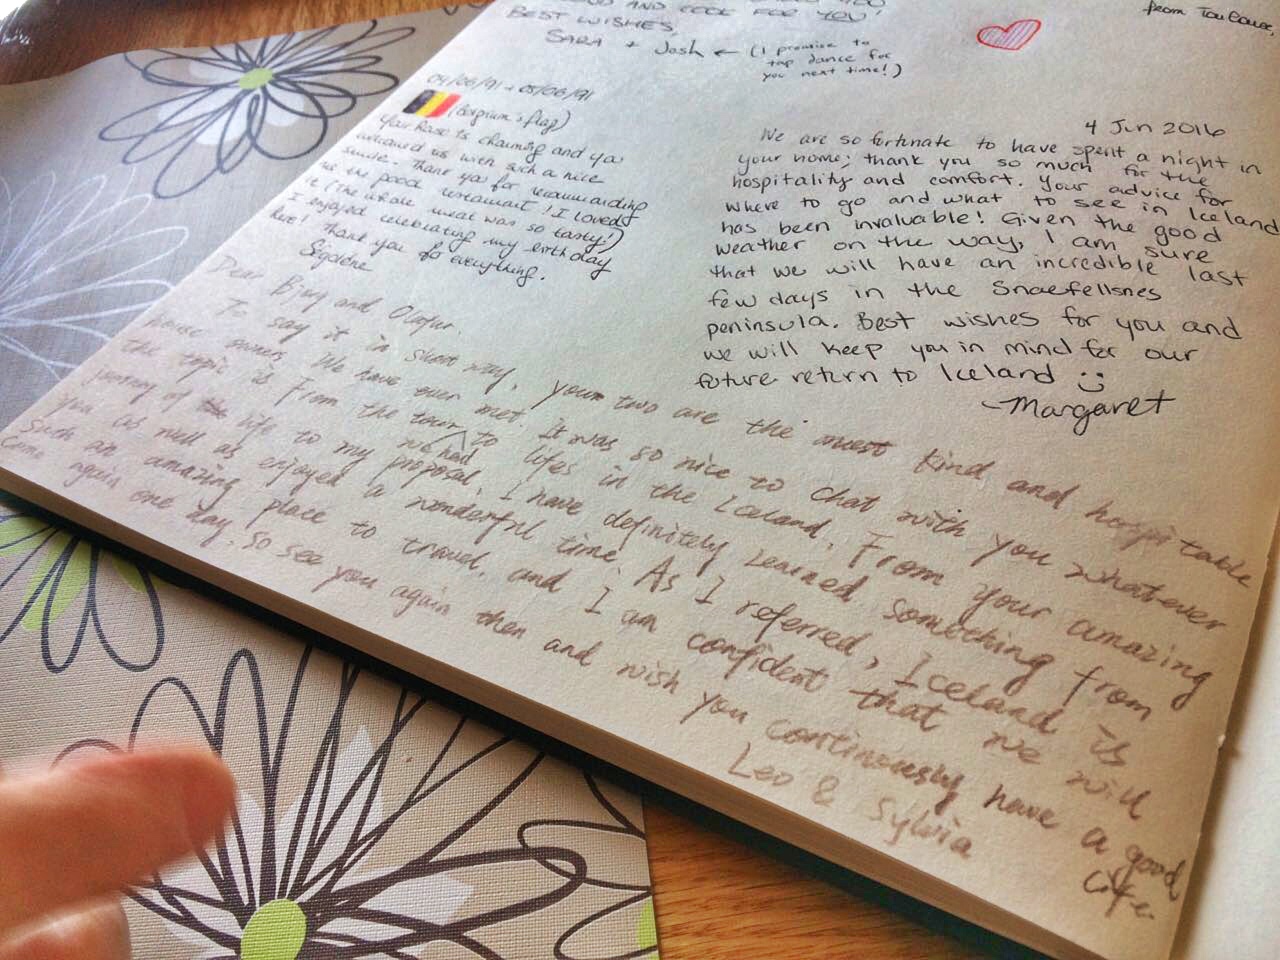 AND COOL FOR YOU!
BEST WISHES,
SARA + Josh ← (I promise to
tap dance for
you next time!)
from Toulouse,
04/06/91 → 05/06/91
(Belgium's flag)
Your house is charming and you
welcomed us with such a nice
smile. Thank you for recommanding
me the good restaurant! I loved
it (The whole meal was so tasty!)
I enjoyed celebrating my birthday
here!
Thank you for everything.
Ségolène
4 Jun 2016
We are so fortunate to have spent a night in
your home; thank you so much for the
hospitality and comfort. Your advice for
where to go and what to see in Iceland
has been invaluable! Given the good
weather on the way, I am sure
that we will have an incredible last
few days in the Snaefellsnes
peninsula. Best wishes for you and
we will keep you in mind for our
future return to Iceland :)
-Margaret
Dear Bjorg and Olafur.
To say it in short way, your two are the most kind and hospitable
house owners We have ever met. It was so nice to chat with you whatever
the topic is From the town to lifes in the Iceland, From your amazing
of life to my proposal, I have definitely learned something from
you as well as we had enjoyed a wonderful time. As I referred, Iceland is
such an amazing place to travel, and I am confident that we will
come again one day. So see you again then and wish you continuously have a good
life.
Leo & Sylvia